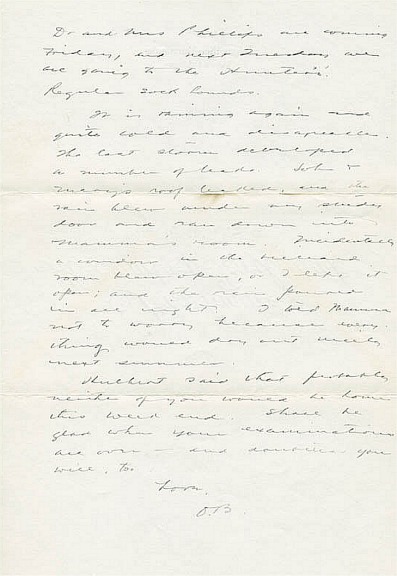 Dr and Mrs Phillips are coming
Friday, and next Tuesday we
are going to the Hunters'.
Regular
It is raining again and
quite cold and disagreeable.
The last storm developed
a number of leaks. John &
Mary's roof leaked, and the
rain blew under my
door and ran down into
Mamma's room. Incidentally
a window in the billiard
room blew open, or I left it
open; and the rain poured
in all night. I told Mamma
not to worry because every-
thing would dry out nicely
next summer.
Hulbert said that probably
neither of you would be home
this week end. Shall be
glad when your examinations
are over - and doubtless you
will, to.
Love,
O.B.